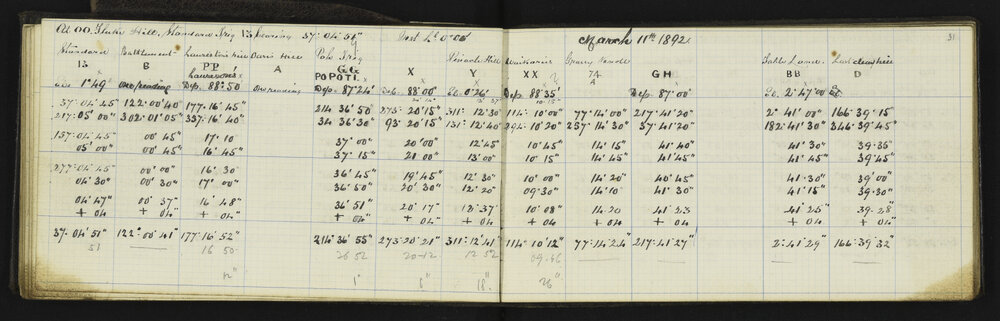 At OO. Fluke Hill, Standard Trig 13 bearing 37° 04' 51" Inst ht 0.00 March 11th 1892. 31
Standard Battlement Laurestonhill Davis Hill Polo Trig Pinacle Hill Gravy Table Land
13 B PP A GG X Y XX GH BB D
Laurences POPOTI
1° 49' Overbearing Dep. 88° 50' Overbearing Dep. 87° 24' Dep. 88° 00' El. 0° 26' Dep. 88° 35' Dep. 87° 00' El. 2° 47' 00"
37° 04' 45" 122° 00' 40" 177° 16' 45" 214° 36' 50" 273° 20' 15" 311° 12' 30" 114° 10' 00" 77° 14' 00" 217° 41' 20" 2° 41' 00" 166° 39' 15"
217° 05' 00" 302° 01' 05" 357° 16' 40" 34° 36' 30" 93° 20' 15" 131° 12' 40" 294° 10' 20" 257° 14' 30" 37° 41' 20" 182° 41' 30" 346° 39' 45"
157° 04' 45" 00' 45" 17' 10" 37' 00" 20' 00" 12' 45" 10' 45" 14' 15" 41' 40" 41' 30" 39' 35"
05' 00" 00' 45" 16' 45" 37' 15" 21' 00" 13' 00" 10' 15" 14' 45" 41' 45" 41' 45" 39' 45"
277° 04' 45" 00' 00" 16' 30" 36' 45" 19' 45" 12' 30" 10' 00" 14' 20" 40' 45" 41' 30" 39' 00"
04' 30" 00' 30" 17' 00" 36' 50" 20' 30" 12' 20" 09' 30" 14' 10" 41' 30" 41' 15" 39' 30"
04' 47" 00' 37" 16' 48" 36' 51" 20' 17" 12' 37" 10' 08" 14' 20" 41' 23" 41' 25" 39' 28"
+ 04 + 04" + 04" + 04" + 04" + 04" + 04" + 04 + 04 + 04 + 04
37° 04' 51" 122° 00' 41" 177° 16' 52" 214° 36' 55" 273° 20' 21" 311° 12' 41" 114° 10' 12" 77° 14' 24" 217° 41' 27" 2° 41' 29" 166° 39' 32"
51 16 50 36 52 20 12 12 52 09 46
12" 1" 6" 18" 26"